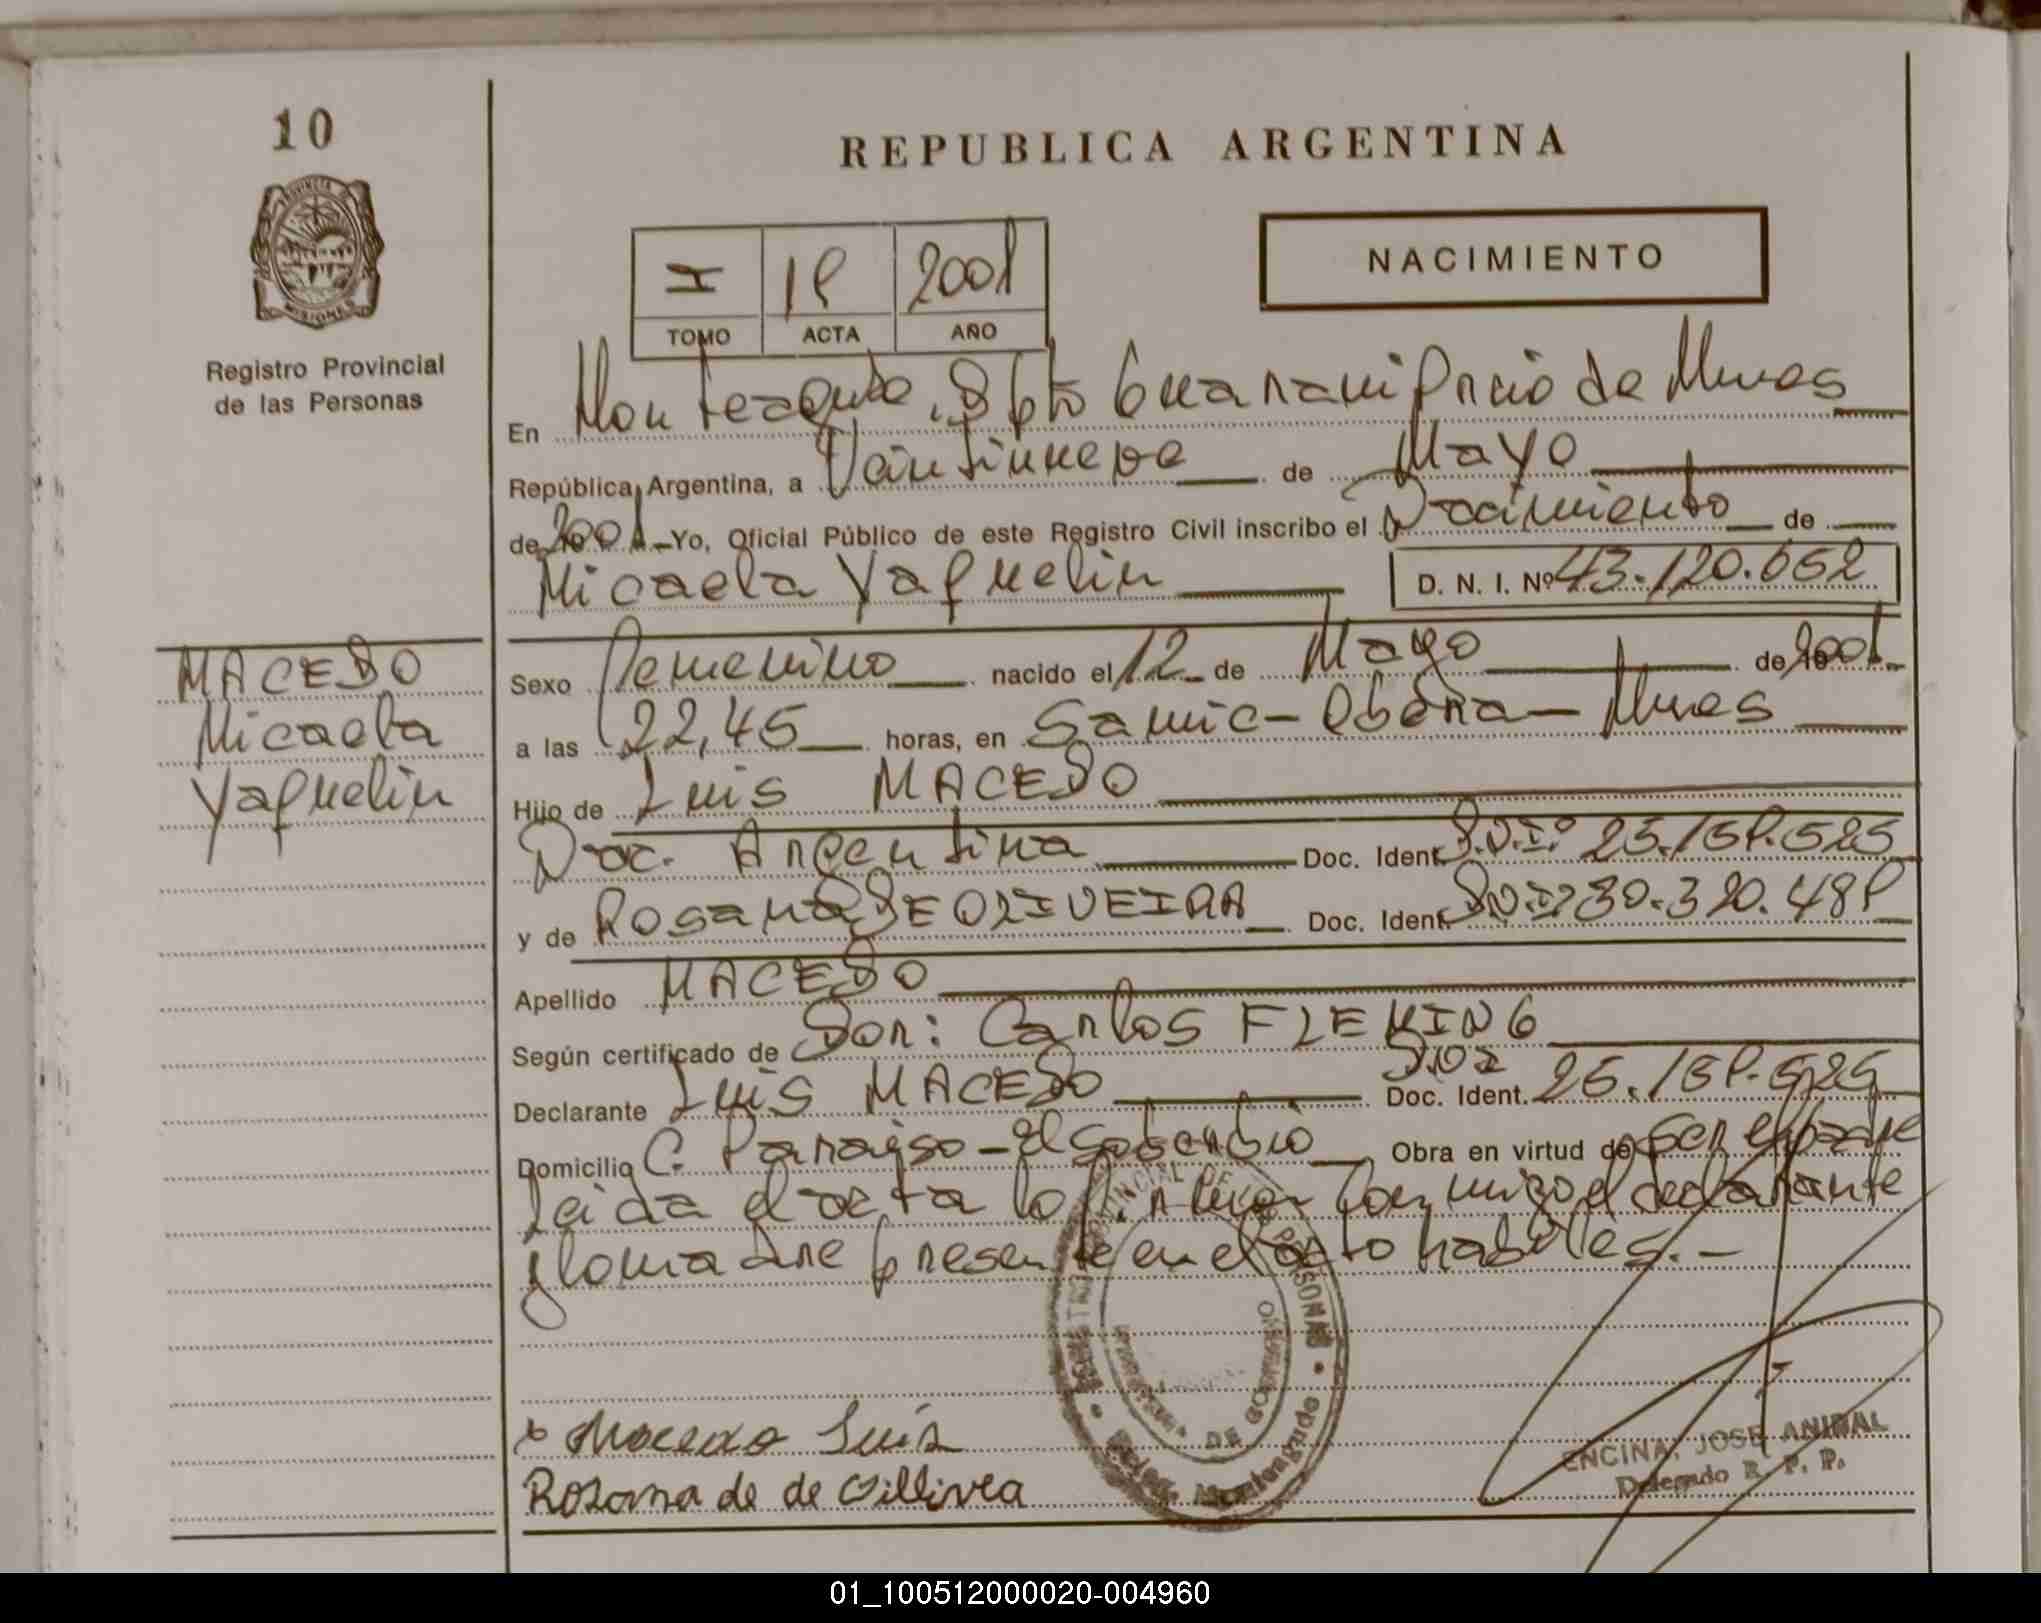 10
REPUBLICA ARGENTINA
NACIMIENTO
I 19 2001
TOMO ACTA AÑO
Registro Provincial
de las Personas
En Monteagudo, Dpto Guarani Pncio de Mnes
República Argentina, a Veintinueve de Mayo
de 2001 Yo, Oficial Público de este Registro Civil inscribo el Nacimiento de
Micaela Yaquelin D. N. I. Nº 43.120.652
MACEDO
Micaela
Yaquelin
Sexo Femenino nacido el 12 de Mayo de 2001
a las 22,45 horas, en Samic - Obera - Mnes
Hijo de Luis MACEDO
Nac. Argentina Doc. Ident. D.N.I. 25.159.525
y de Rosana DE OLIVEIRA Doc. Ident. D.N.I. 30.390.489
Apellido MACEDO
Según certificado de Don: Carlos FLEMING
Declarante Luis MACEDO D.N.I Doc. Ident. 25.159.525
Domicilio C. Paraiso - El Soberbio Obra en virtud de ser el padre
Leida el acta lo firman conmigo el declarante
y la madre presente en el acto habiles.-
Macedo Luis
Rosana de de Oillivea
ENCINA, JOSE ANIBAL
Delegado R. P. P.
01_100512000020-004960